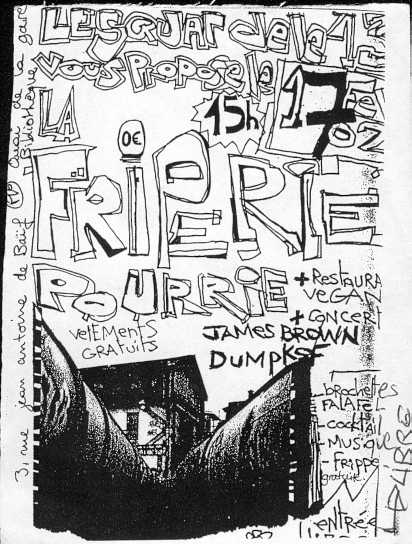 LESQUAT de la 12
VOUS PROPOSE le
17 FEV
02
15h
LA
0€
FRIPERIE
POURRIE
VETEMENTS
GRATUITS
+ RESTAURA
VEGAN
+ CONCERT
JAMES BROWN
DUMPKSF
- brochettes
FALAFEL
- cocktail
- MUSIQ
- frippe
gratuite
entrée
LIBRE
3, rue jean antoine de Baïf quai de la gare
Bibliothèque